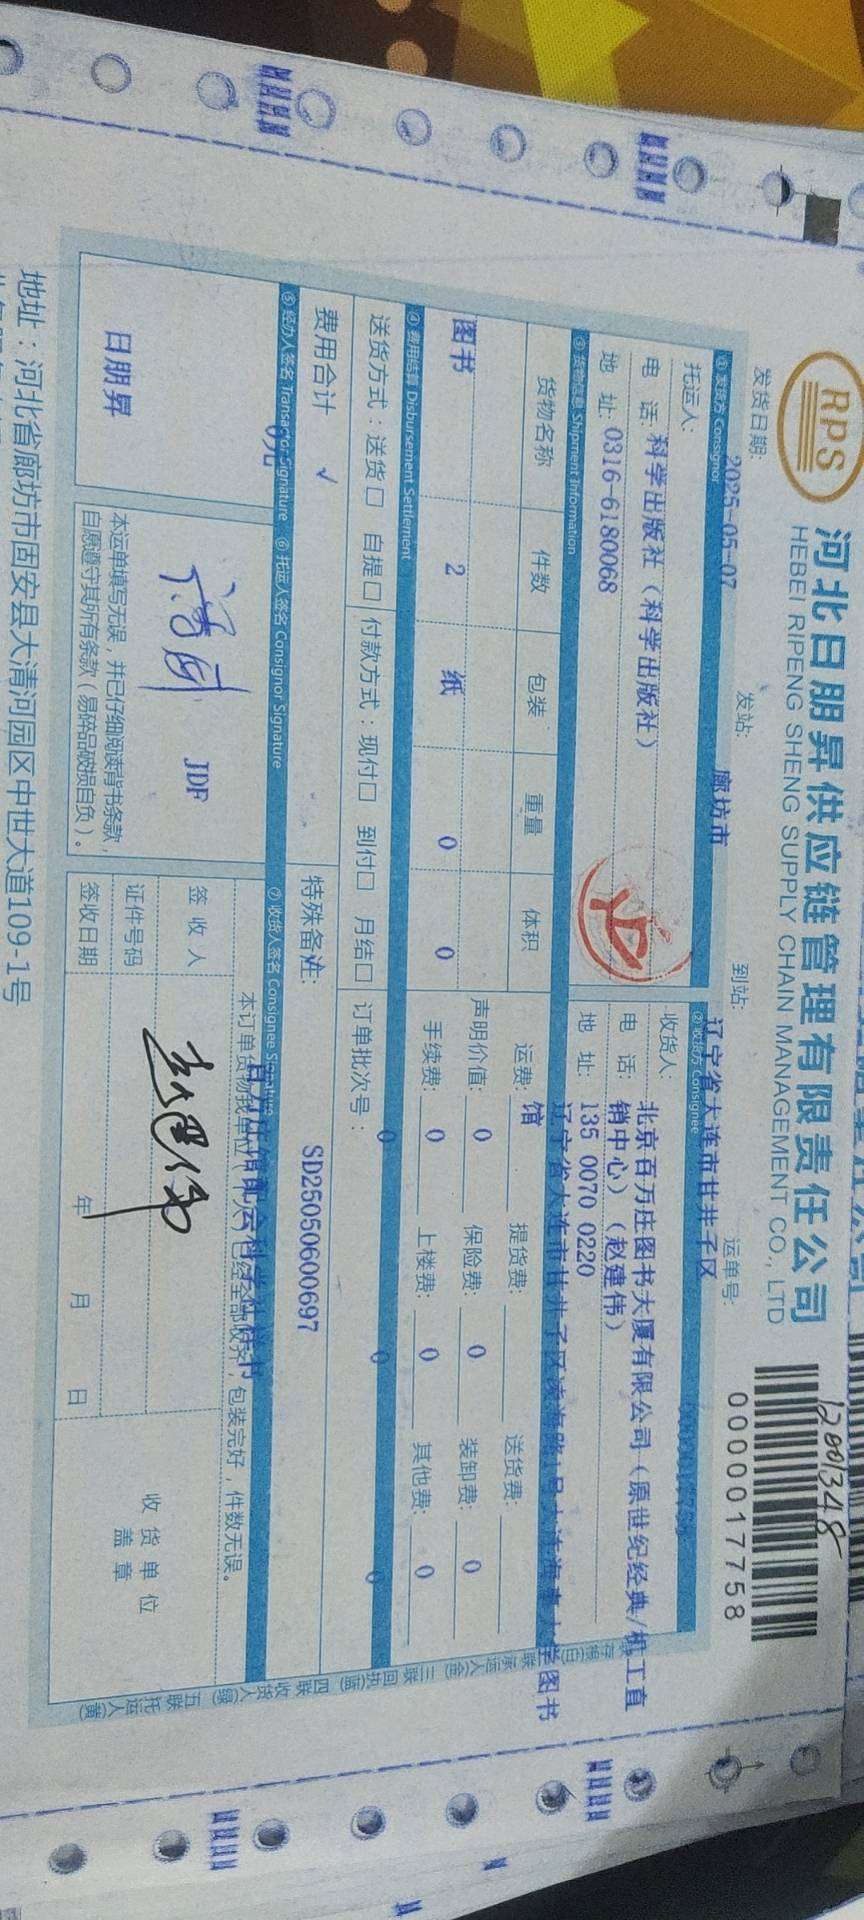 RPS
河北日朋昇供应链管理有限责任公司
HEBEI RIPENG SHENG SUPPLY CHAIN MANAGEMENT CO., LTD
12001348
0000017758
发货日期: 2025-05-07
发站: 廊坊市
到站: 辽宁省大连市甘井子区
运单号:
① 发货方 Consignor
② 收货方 Consignee
托运人: 科学出版社（科学出版社）
电 话: 0316-6180068
地 址:
收货人: 北京百万庄图书大厦有限公司（原世纪经典/机工直
销中心）（赵建伟）
电 话: 135 0070 0220
地 址: 辽宁省大连市甘井子区凌海路1号大连海事大学图书
馆
③ 货物信息 Shipment Information
货物名称 件数 包装 重量 体积
图书 2 纸 0 0
运费: 提货费: 送货费:
声明价值: 0 保险费: 0 装卸费: 0
手续费: 0 上楼费: 0 其他费: 0
④ 费用结算 Disbursement Settlement
0 0 0
送货方式：送货□ 自提□ 付款方式：现付□ 到付□ 月结□ 订单批次号：
费用合计 √
0元
特殊备注: SD25050600697
⑤ 经办人签名 Transactor Signature
⑥ 托运人签名 Consignor Signature
⑦ 收货人签名 Consignee Signature
日朋昇
JDF
本运单填写无误，并已仔细阅读背书条款
自愿遵守其所有条款（易碎品破损自负）。
包装完好，件数无误。
签 收 人 赵建伟
证件号码
签收日期 年 月 日
收货单位
盖章
地址：河北省廊坊市固安县大清河园区中世大道109-1号